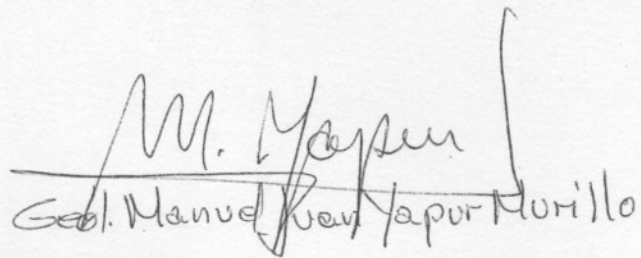 M. Yapur
Geol. Manuel Juan Yapur Murillo